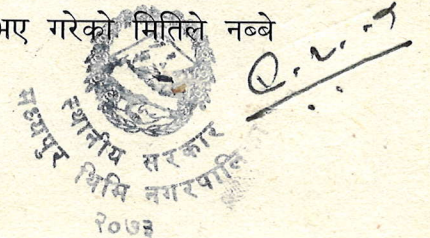 भए गरेको मितिले नब्बे
स्थानीय सरकार
मध्यपुर थिमि नगरपालि
२०७३